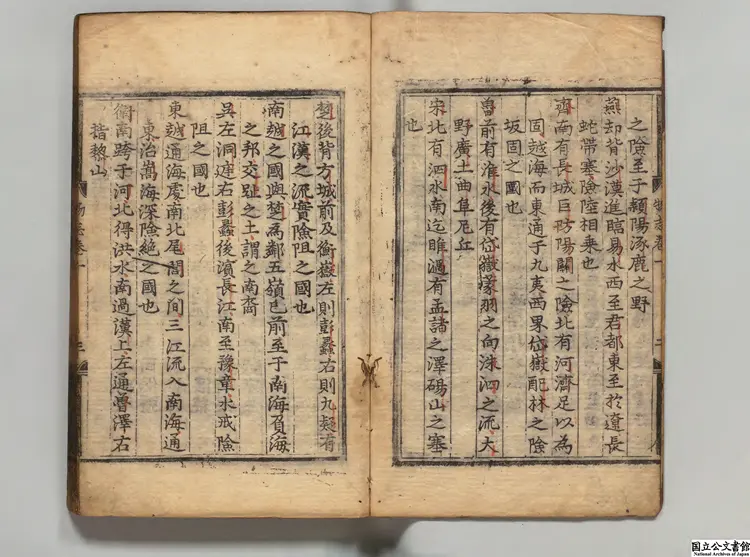 之險至于潁陽涿鹿之野
燕却背沙漠進臨易水西至君都東至於遼長
蛇帶塞險陸相乗也
齊南有長城巨防陽關之險北有河濟足以為
固越海而東通于九夷西界岱嶽配林之險
坂固之國也
魯前有淮水後有岱嶽蒙羽之向洙泗之流大
野廣土曲阜尼丘
宋北有泗水南迄睢過有孟諸之澤碭山之塞
也
楚後背方城前及衡嶽左則彭蠡右則九疑有
江漢之流實險阻之國也
南越之國與楚為鄰五嶺已前至于南海負海
之邦交趾之土謂之南裔
吳左洞連右彭蠡後濱長江南至豫章水戒險
阻之國也
東越通海處南北尾閭之間三江流入南海通
東治嵩海深險絶之國也
衛南跨于河北得洪水南過漢上左通魯澤右
指黎山
三
国立公文書館
National Archives of Japan